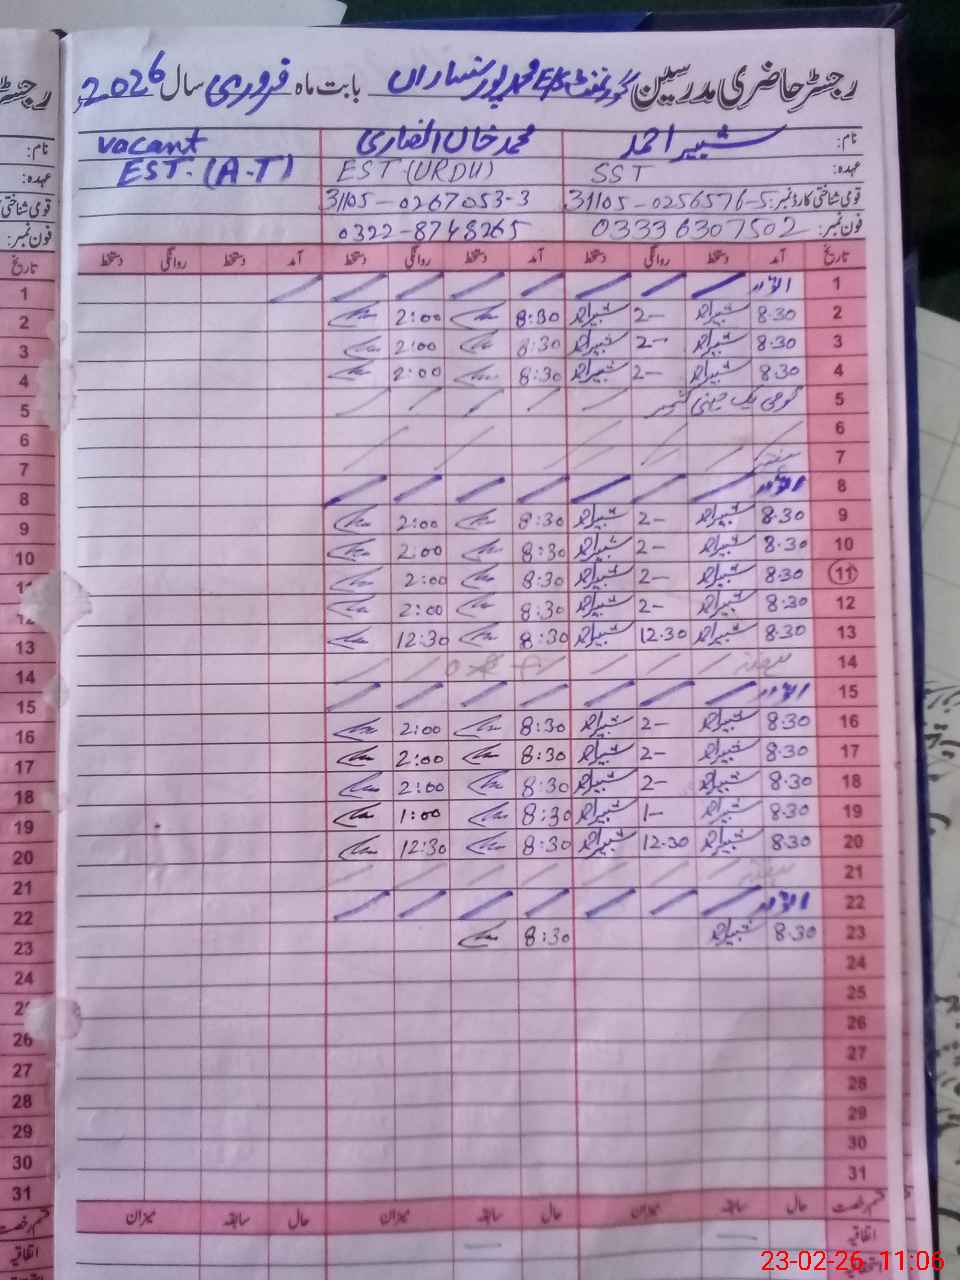 رجسٹر حاضری مدرسین گورنمنٹ E/S محمد پور نسیاراں بابت ماہ فروری سال 2026
نام: شبیر احمد محمد خان انصاری vacant
عہدہ: SST EST (URDU) EST. (A.T)
قومی شناختی کارڈ نمبر: 31105-0256576-5 31105-0267053-3
فون نمبر: 03336307502 0322-8748265
تاریخ آمد دستخط روانگی دستخط آمد دستخط روانگی دستخط آمد دستخط روانگی دستخط
1 اتوار
2 8.30 شبیراحمد 2- شبیراحمد 8:30 2:00
3 8.30 شبیراحمد 2- شبیراحمد 8:30 2:00
4 8.30 شبیراحمد 2- شبیراحمد 8:30 2:00
5 یوم یک جہتی کشمیر
6
7 ہفتہ
8 اتوار
9 8.30 شبیراحمد 2- شبیراحمد 8:30 2:00
10 8.30 شبیراحمد 2- شبیراحمد 8:30 2:00
11 8.30 شبیراحمد 2- شبیراحمد 8:30 2:00
12 8.30 شبیراحمد 2- شبیراحمد 8:30 2:00
13 8.30 شبیراحمد 12.30 شبیراحمد 8:30 12:30
14 ہفتہ
15 اتوار
16 8.30 شبیراحمد 2- شبیراحمد 8:30 2:00
17 8.30 شبیراحمد 2- شبیراحمد 8:30 2:00
18 8.30 شبیراحمد 2- شبیراحمد 8:30 2:00
19 8.30 شبیراحمد 1- شبیراحمد 8:30 1:00
20 8.30 شبیراحمد 12.30 شبیراحمد 8:30 12:30
21 ہفتہ
22 اتوار
23 8.30 شبیراحمد 8:30
24
25
26
27
28
29
30
31
قسم رخصت حال سابقہ میزان حال سابقہ میزان حال سابقہ میزان
اتفاقیہ
23-02-26 11:06